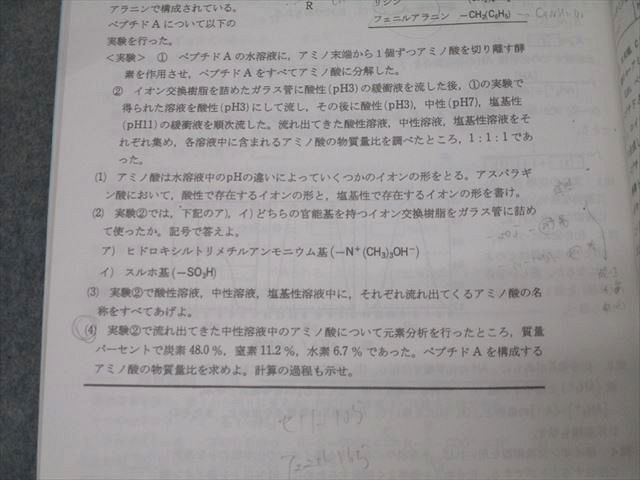 アラニンで構成されている。
R
リシン
フェニルアラニン －CH₂(C₆H₅)
ペプチド A について以下の
実験を行った。
＜実験＞ ① ペプチド A の水溶液に，アミノ末端から1個ずつアミノ酸を切り離す酵
素を作用させ，ペプチド A をすべてアミノ酸に分解した。
② イオン交換樹脂を詰めたガラス管に酸性(pH3)の緩衝液を流した後，①の実験で
得られた溶液を酸性(pH3)にして流し，その後に酸性(pH3)，中性(pH7)，塩基性
(pH11)の緩衝液を順次流した。流れ出てきた酸性溶液，中性溶液，塩基性溶液をそ
れぞれ集め，各溶液中に含まれるアミノ酸の物質量比を調べたところ，1：1：1であ
った。
(1) アミノ酸は水溶液中のpHの違いによっていくつかのイオンの形をとる。アスパラギ
ン酸において，酸性で存在するイオンの形と，塩基性で存在するイオンの形を書け。
(2) 実験②では，下記のア)，イ)どちらの官能基を持つイオン交換樹脂をガラス管に詰め
て使ったか。記号で答えよ。
ア) ヒドロキシルトリメチルアンモニウム基(－N⁺(CH₃)₃OH⁻)
イ) スルホ基(－SO₃H)
(3) 実験②で酸性溶液，中性溶液，塩基性溶液中に，それぞれ流れ出てくるアミノ酸の名
称をすべてあげよ。
(4) 実験②で流れ出てきた中性溶液中のアミノ酸について元素分析を行ったところ，質量
パーセントで炭素 48.0 %，窒素 11.2 %，水素 6.7 % であった。ペプチド A を構成する
アミノ酸の物質量比を求めよ。計算の過程も示せ。